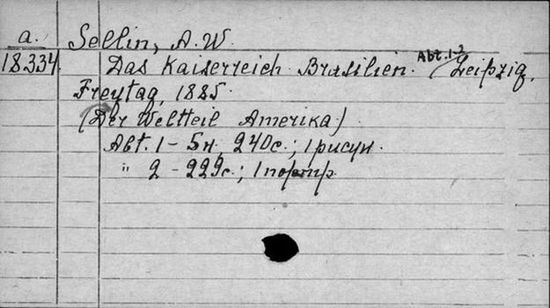 a. Sellin, A. W.
18334. Das Kaiserreich Brasilien. Abt. 1-2 Leipzig,
Freytag, 1885
(Der Weltteil Amerika)
Abt. 1 - 5н, 240с.; 1 рисун.
" 2 - 229с.; 1 портр.